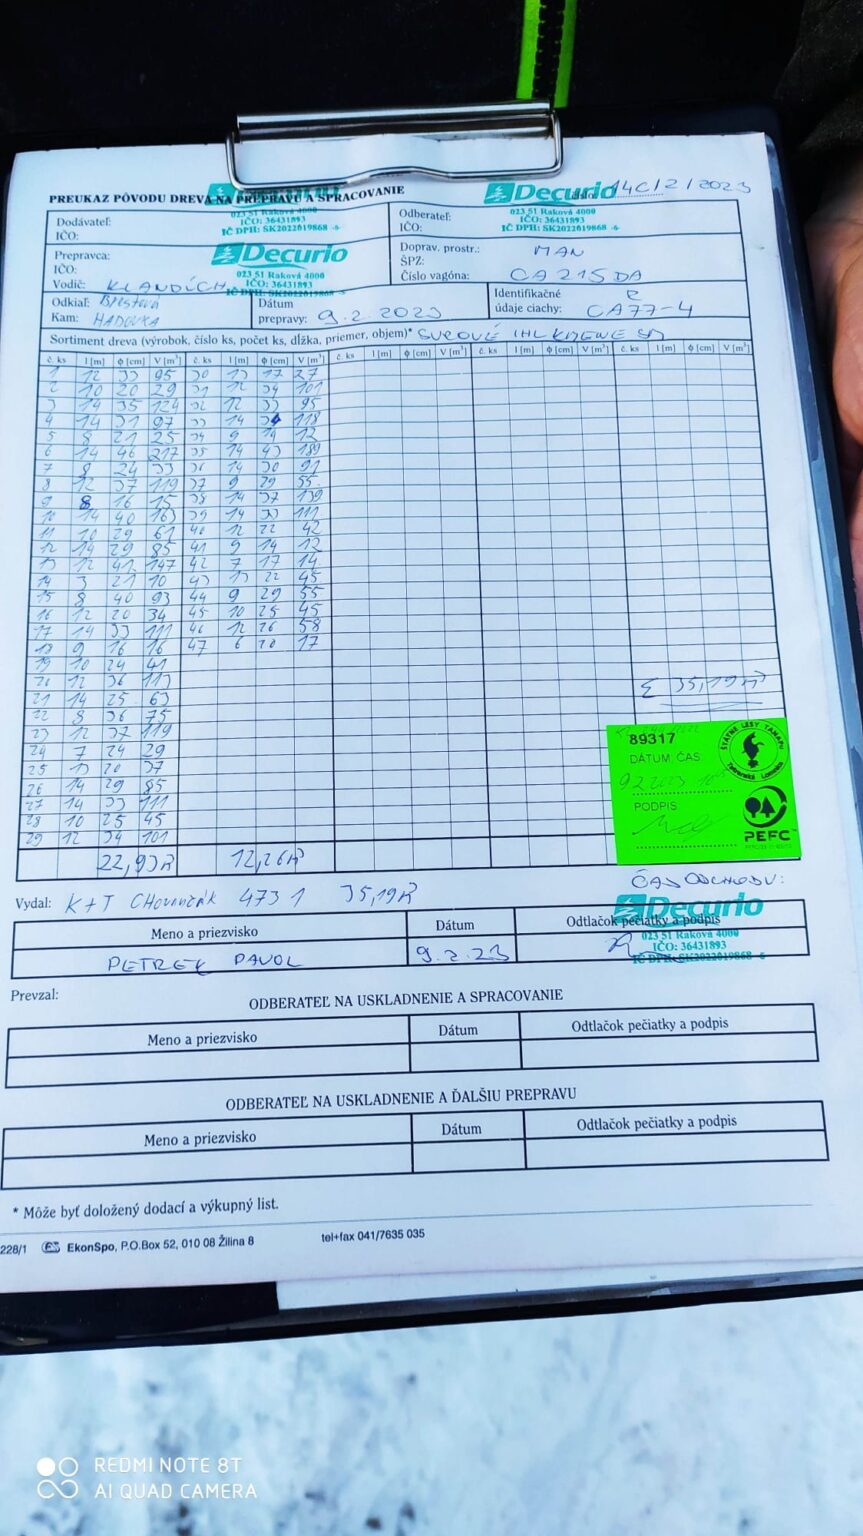 PREUKAZ PÔVODU DREVA NA PREPRAVU A SPRACOVANIE
Decurio 14C/2/2023
023 51 Raková 4000
IČO: 36431893
IČ DPH: SK2022019868 -6
Dodávateľ:
IČO:
023 51 Raková 4000
IČO: 36431893
IČ DPH: SK2022019868 -6
Odberateľ:
IČO:
Prepravca:
IČO:
Vodič: KLANDÚCH
Decurio
023 51 Raková 4000
IČO: 36431893
IČ DPH: SK2022019868 -6
Doprav. prostr.: MAN
ŠPZ:
Číslo vagóna: CA 215DA
Odkiaľ: Brestová
Kam: HADOVKA
Dátum
prepravy: 9.2.2023
Identifikačné
údaje ciachy: CA77-4
Sortiment dreva (výrobok, číslo ks, počet ks, dĺžka, priemer, objem)* SUROVÉ IHL KMEŇE
č. ks l [m] ϕ [cm] V [m³] č. ks l [m] ϕ [cm] V [m³] č. ks l [m] ϕ [cm] V [m³] č. ks l [m] ϕ [cm] V [m³] č. ks l [m] ϕ [cm] V [m³]
1 12 33 95 30 13 17 27
2 10 20 29 31 12 34 101
3 14 35 124 32 12 33 95
4 14 31 97 33 14 34 118
5 8 21 25 34 9 14 12
6 14 46 217 35 14 43 189
7 8 24 33 36 14 30 91
8 12 37 119 37 9 29 55
9 8 16 15 38 14 37 139
10 14 40 163 39 14 33 111
11 10 29 61 40 12 22 42
12 14 29 85 41 9 14 12
13 12 41 147 42 7 17 14
14 3 21 10 43 13 22 45
15 8 40 93 44 9 29 55
16 12 20 34 45 10 25 45
17 14 33 111 46 12 26 58
18 9 16 16 47 6 20 17
19 10 24 41
20 12 36 113
21 14 25 63
22 8 36 75
23 12 37 119
24 7 24 29
25 13 20 37
26 14 29 85
27 14 33 111
28 10 25 45
29 12 34 101
Σ 35,19 m³
22,93 m³ 12,26 m³
89317
DÁTUM, ČAS
9.2.2023
PODPIS
ŠTÁTNE LESY TANAPU
Tatranská Lomnica
PEFC
ČAS ODCHODU:
Vydal: K+T 4731 35,19 m³
Meno a priezvisko Dátum Odtlačok pečiatky a podpis
PETREK PAVOL 9.2.23
Decurio
023 51 Raková 4000
IČO: 36431893
IČ DPH: SK2022019868 -6
Prevzal:
ODBERATEĽ NA USKLADNENIE A SPRACOVANIE
Meno a priezvisko Dátum Odtlačok pečiatky a podpis
ODBERATEĽ NA USKLADNENIE A ĎALŠIU PREPRAVU
Meno a priezvisko Dátum Odtlačok pečiatky a podpis
* Môže byť doložený dodací a výkupný list.
228/1 EkonSpo, P.O.Box 52, 010 08 Žilina 8 tel+fax 041/7635 035
REDMI NOTE 8T
AI QUAD CAMERA